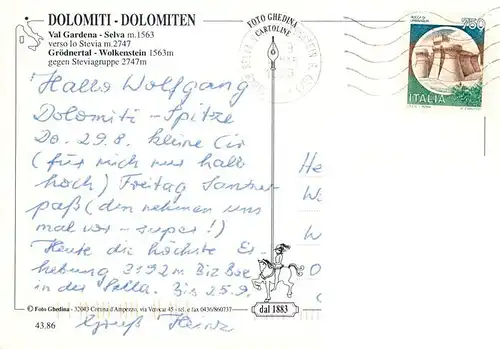 DOLOMITI - DOLOMITEN
Val Gardena - Selva m.1563
verso lo Stevia m.2747
Grödnertal - Wolkenstein 1563m
gegen Steviagruppe 2747m
FOTO GHEDINA
CARTOLINE
750
ITALIA
Hallo Wolfgang
Dolomiti - Spitze
Do. 29.8. kleine Cir
(für mich nur halb
hoch) Freitag
paß (den nehmen uns
mal vor - super!)
Heute die höchste Er-
hebung 3192 m Biz Boe
in der Sella. Bis 25.9.
Gruß Heinz
He
W
W
© Foto Ghedina - 32043 Cortina d'Ampezzo, via Verocai 45 - tel. e fax 0436/860737
dal 1883
43.86